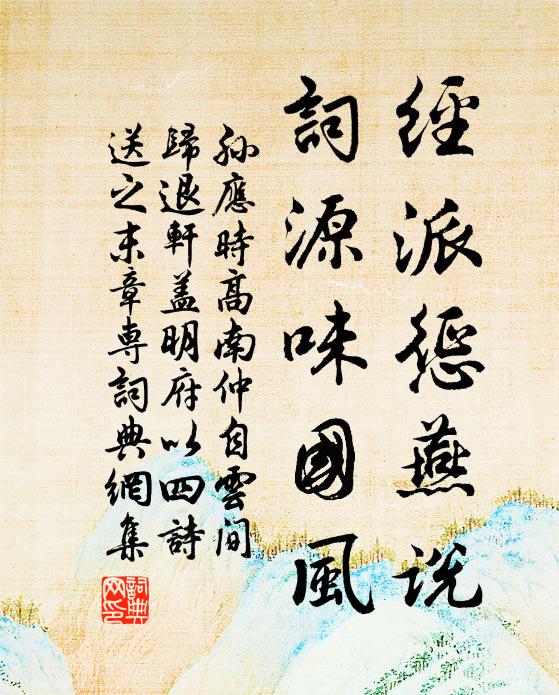 經派懲燕說
詞源味國風
孫應時高南仲自雲間
歸退軒蓋明府以四詩
送之末章專詞典網集
詞典網印